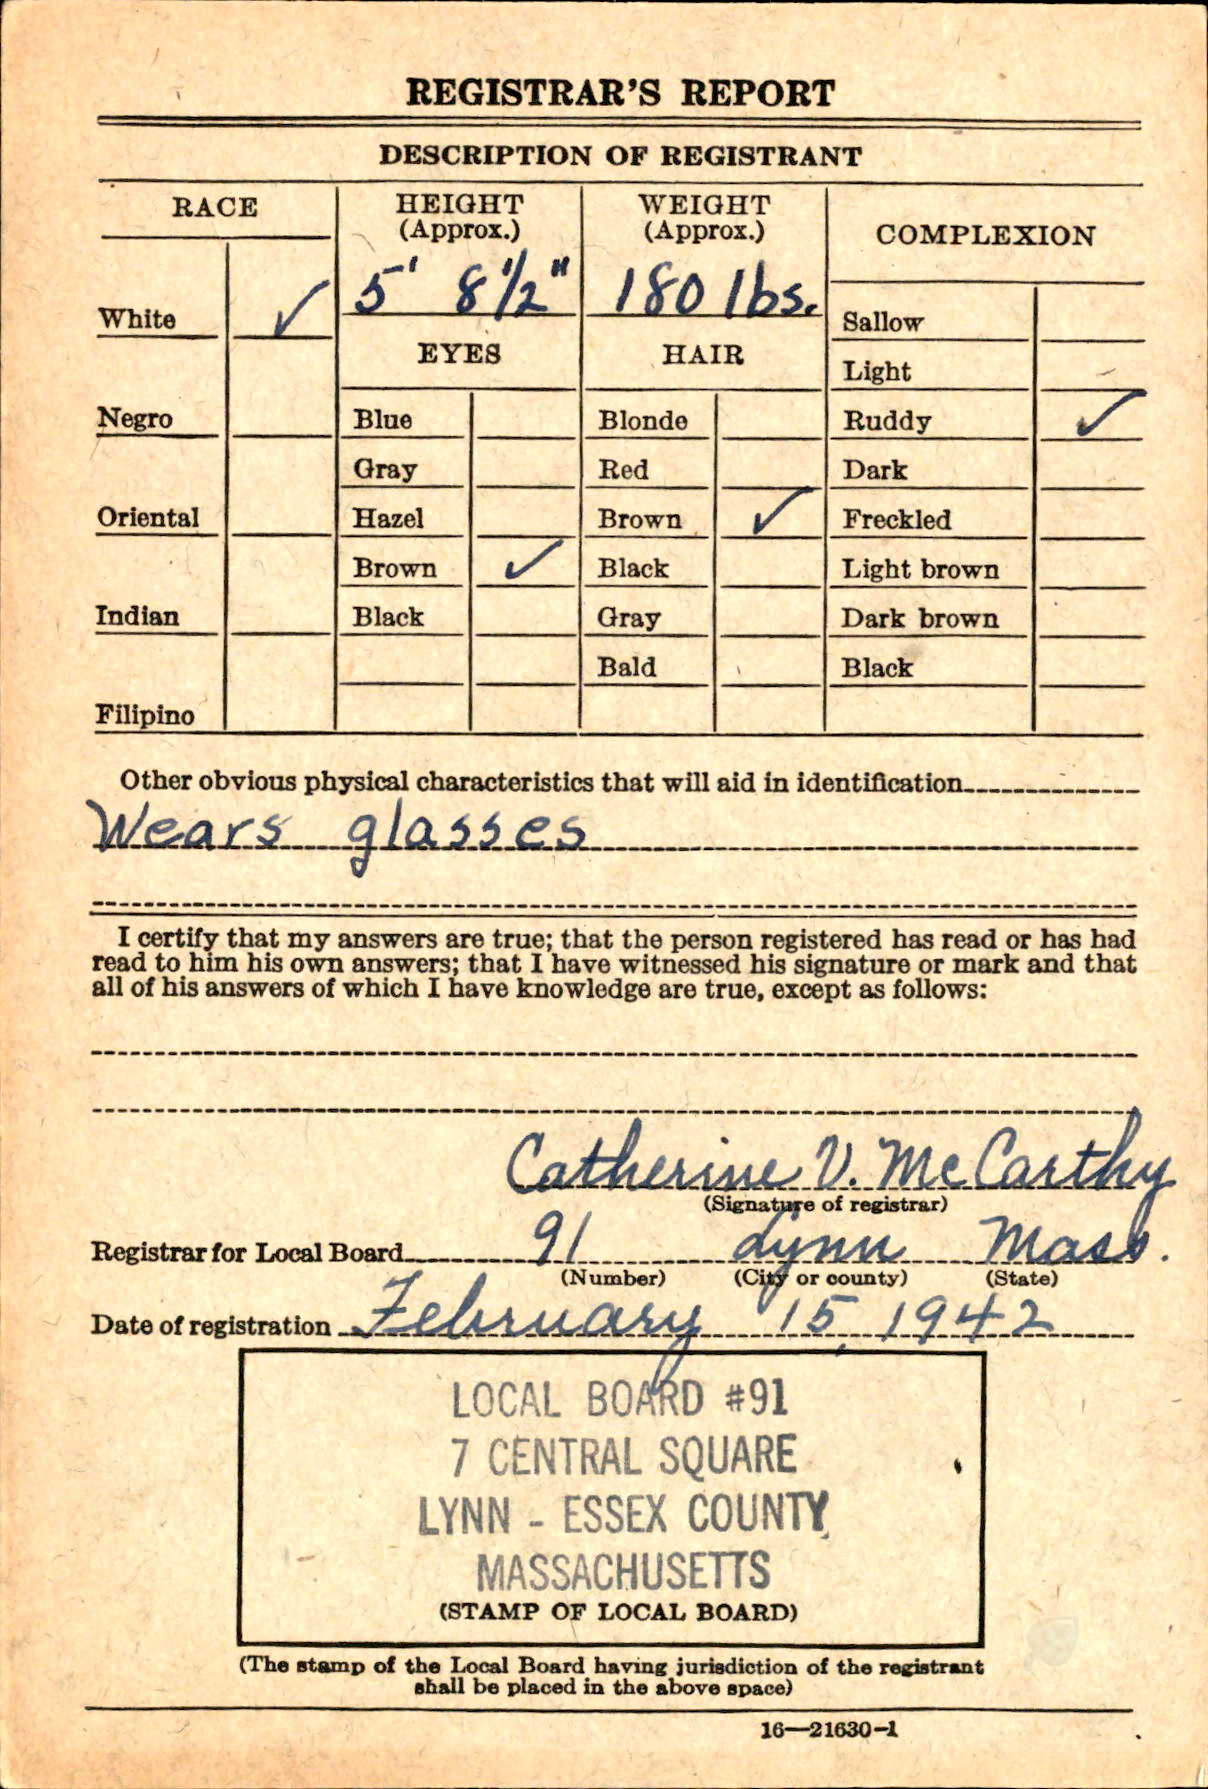 REGISTRAR'S REPORT
DESCRIPTION OF REGISTRANT
RACE
HEIGHT
(Approx.)
WEIGHT
(Approx.)
COMPLEXION
5' 8 1/2"
180 lbs.
White ✓
Sallow
EYES
HAIR
Light
Negro
Blue
Blonde
Ruddy ✓
Gray
Red
Dark
Oriental
Hazel
Brown ✓
Freckled
Brown ✓
Black
Light brown
Indian
Black
Gray
Dark brown
Bald
Black
Filipino
Other obvious physical characteristics that will aid in identification
Wears glasses
I certify that my answers are true; that the person registered has read or has had
read to him his own answers; that I have witnessed his signature or mark and that
all of his answers of which I have knowledge are true, except as follows:
Catherine V. McCarthy
(Signature of registrar)
Registrar for Local Board 91 Lynn Mass.
(Number) (City or county) (State)
Date of registration February 15, 1942
LOCAL BOARD #91
7 CENTRAL SQUARE
LYNN - ESSEX COUNTY
MASSACHUSETTS
(STAMP OF LOCAL BOARD)
(The stamp of the Local Board having jurisdiction of the registrant
shall be placed in the above space)
16—21630-1